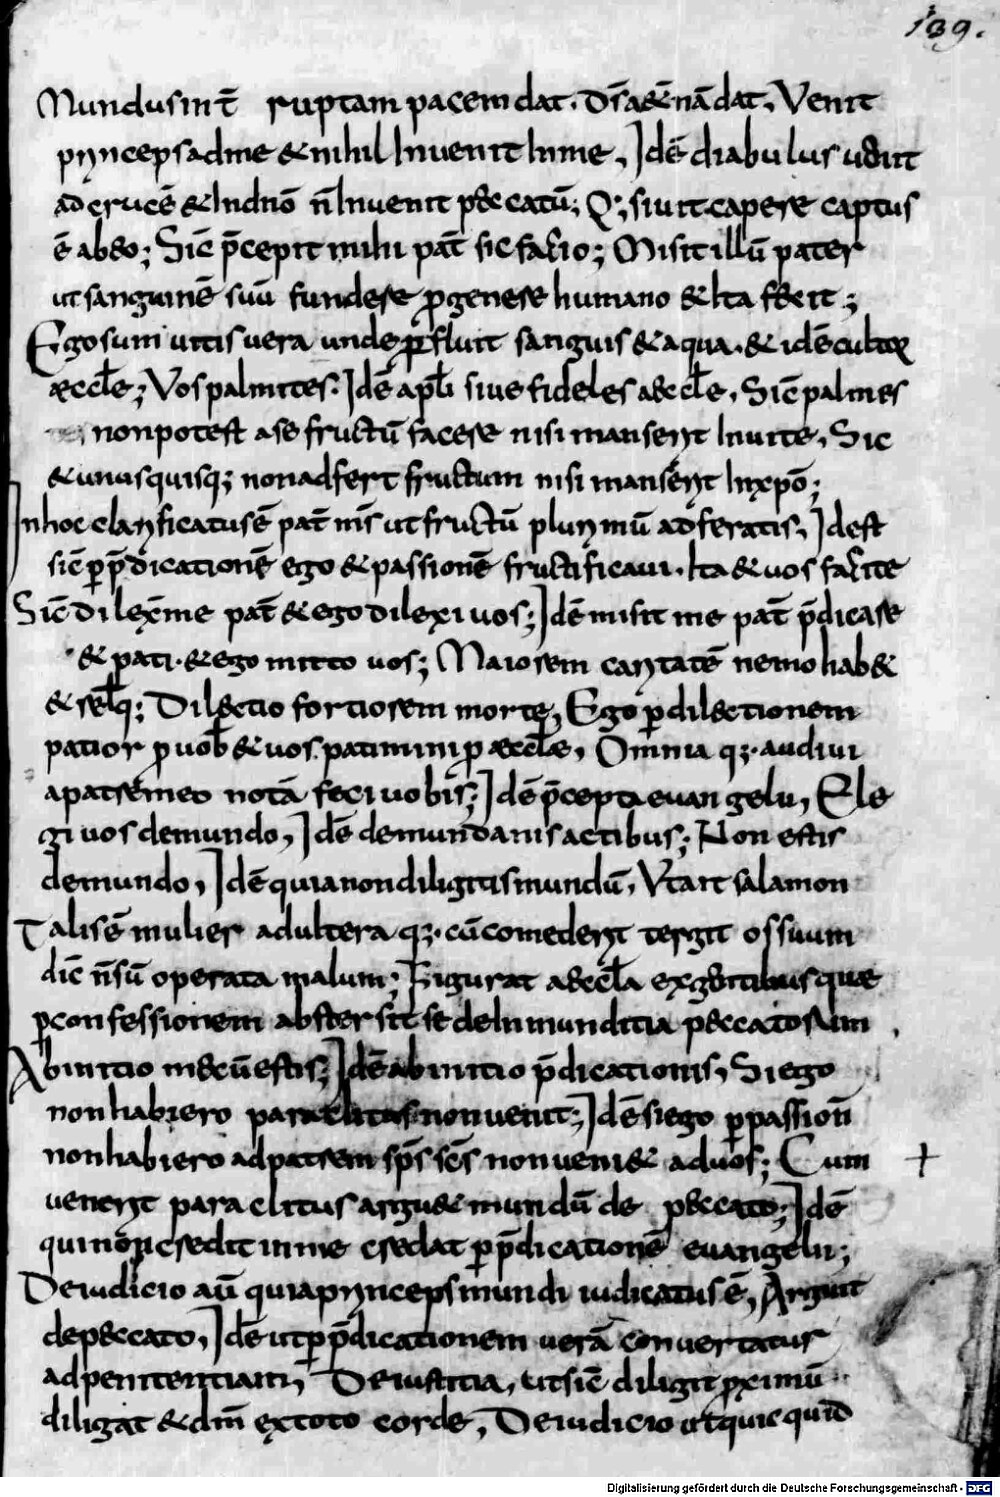 139.
Mundus int̄ ruptam pacem dat. d̄s aet̄nā dat, Venit
prynceps adme & nihil Inuenit Inme, Idē diabulus uenit
ad crucē & Indn̄o n̄ Inuenit peccatū; Q; siuit capere captus
ē ab eo; Sic̄ p̄cepit mihi pat̄ sic facio; Misit illū pater
ut sanguinē suū fundere ꝓgenere humano & Ita fecit;
Ego sum uitis uera unde ꝓfluit sanguis & aqua. & idē cultor
æccl̄e; Vos palmites. Idē apl̄i siue fideles aeccl̄e, Sic̄ palmes
non potest ase fructū facere nisi manseryt Inuite, Sic
& unusquisq; non adfert fructum nisi manseryt Inxp̄o;
Inhoc claryficatus ē pat̄ m̄s ut fructū plurymū adferatis, Idest
sic̄ ꝑp̄dicationē ego & passionē fructificaui. Ita & uos facite
Sic̄ dilex̄ me pat̄ & ego dilexi uos; Idē misit me pat̄ p̄dicare
& pati. & ego mitto uos; Maiorem carytatē nemo hab&
& rel̄q; Dilectio fortiorem morte, Ego ꝑdilectionem
patior ꝓuob̄ & uos patimini ꝓ æccl̄æ, Omnia qȝ. audiui
apatre meo notā feci uobis; Idē p̄cepta euangelii, Ele
gi uos demundo, Idē demundanis actibus; Non estis
demundo, Idē quia non diligitis mundū, Vt ait salamon
Talis ē mulier adultera qȝ. cū comederyt tergit os suum
dic̄ n̄sū operata malum; Figurat aeccl̄a exgentibus quae
ꝑconfessionem abstersit se deInmunditia peccatorum,
Abinitio mecū estis; Idē abinitio p̄dicationis, Si ego
non habiero paraclitus non uenit; Idē si ego ꝑpassion̄
non habiero ad patrem sp̄s sc̄s non ueni& aduos; Cum +
ueneryt paraclitus argu& mundū de peccato; Idē
qui non credit inme credat ꝑp̄dicationē euangelii;
Deiudicio aū quia prynceps mundi iudicatus ē, Arguit
depeccato, Idē ut ꝑp̄dicationem uerā conuertatur
adpenitentiam, Deiustitia, ut sic̄ diligit ꝓximū
diligat & dm̄ extoto corde, Deiudicio ut quicquid
Digitalisierung gefördert durch die Deutsche Forschungsgemeinschaft - DFG